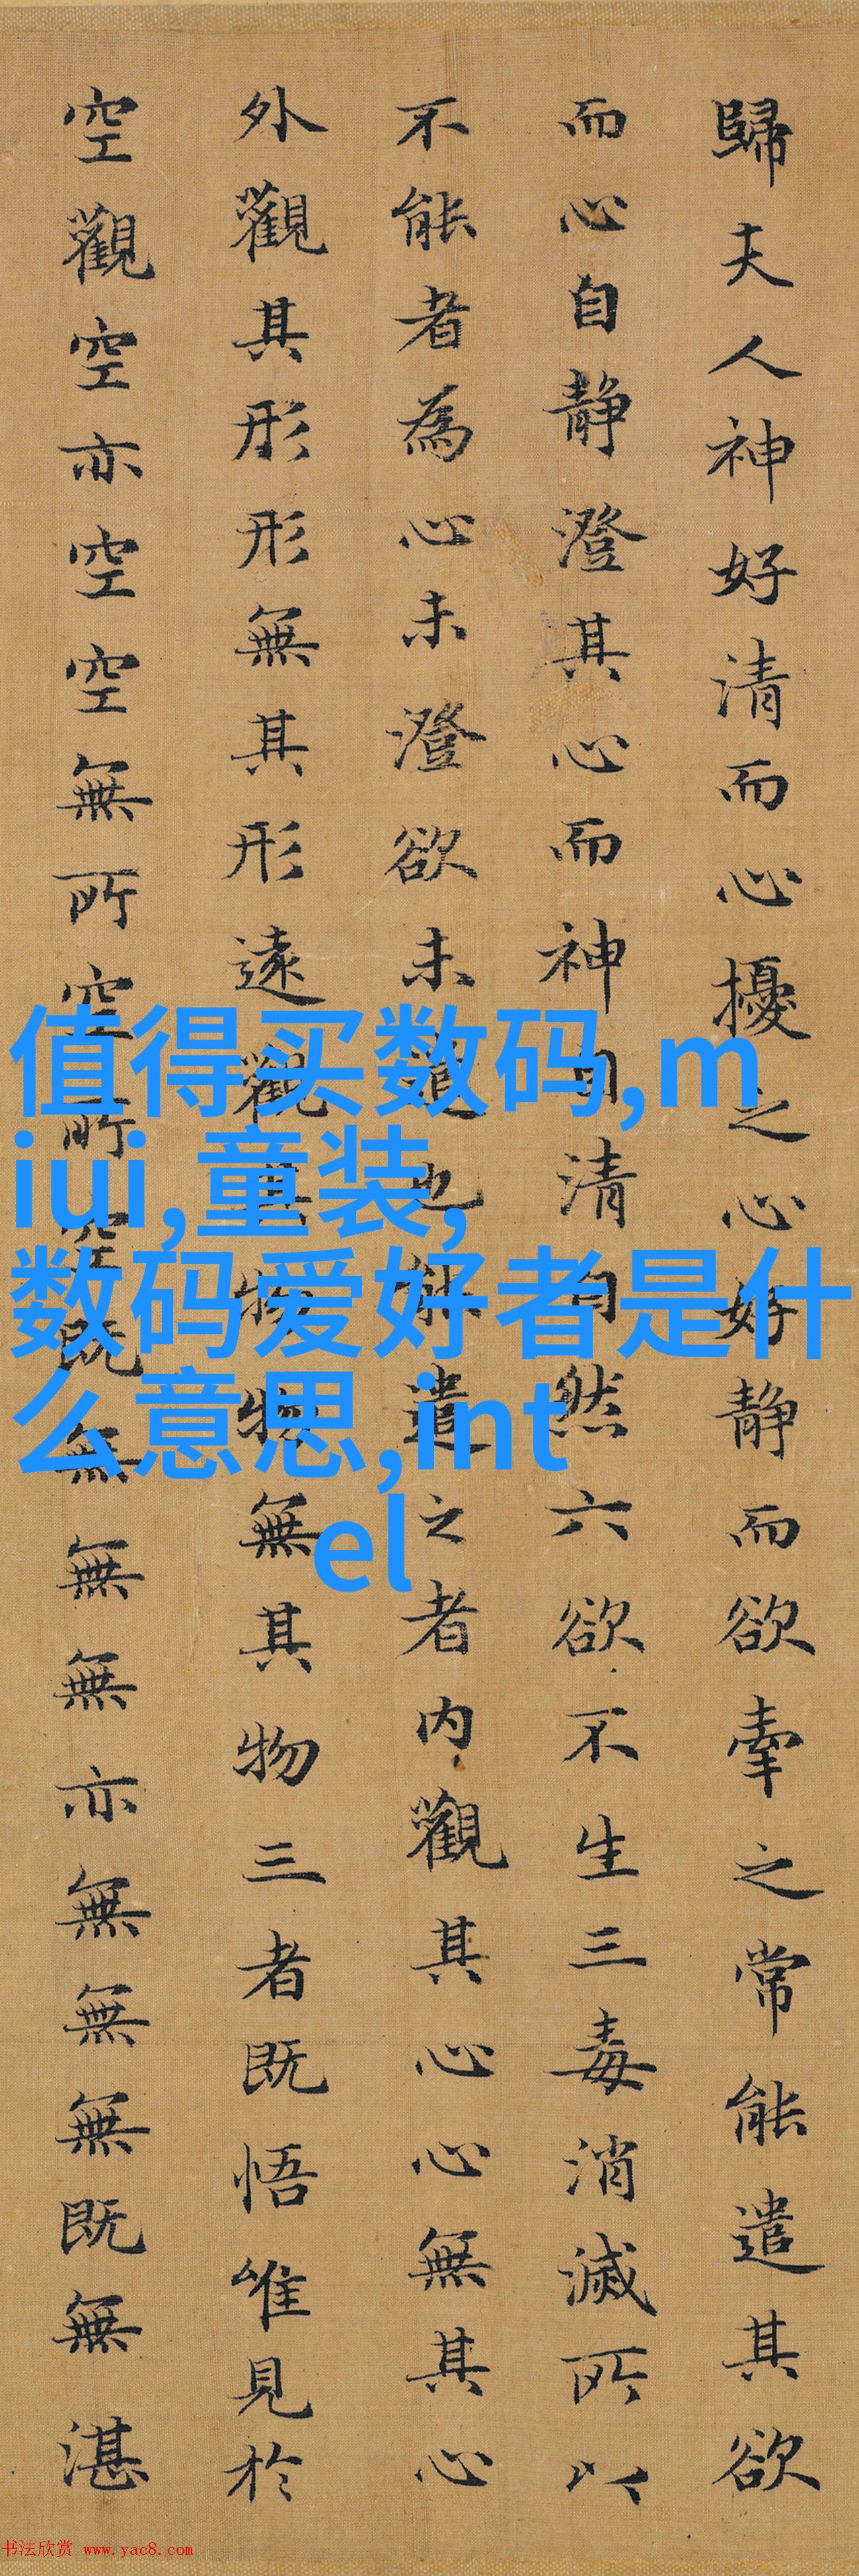 歸夫人神好清而心擾之心好静而欲牽之常能遣其欲
而心自静澄其心而神自清自然六欲不生三毒消滅所以
不能者為心未澄欲未遣也能遣之者内觀其心心無其心
外觀其形形無其形遠觀其物物無其物三者既悟唯見於
空觀空亦空空無所空所空既無無無亦無無無既無湛
值得买数码,m
iui,童装,
数码爱好者是什
么意思,int
el
书法欣赏 www.yac8.com